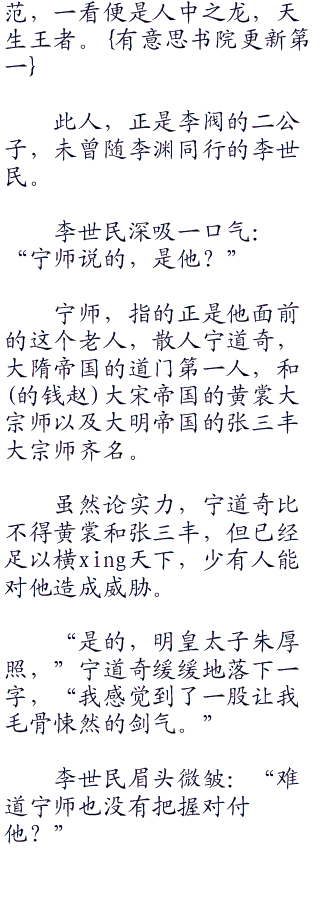 范，一看便是人中之龙，天
生王者。{有意思书院更新第
一}
此人，正是李阀的二公
子，未曾随李渊同行的李世
民。
李世民深吸一口气：
“宁师说的，是他？”
宁师，指的正是他面前
的这个老人，散人宁道奇，
大隋帝国的道门第一人，和
(的钱赵)大宋帝国的黄裳大
宗师以及大明帝国的张三丰
大宗师齐名。
虽然论实力，宁道奇比
不得黄裳和张三丰，但已经
足以横xing天下，少有人能
对他造成威胁。
“是的，明皇太子朱厚
照，”宁道奇缓缓地落下一
字，“我感觉到了一股让我
毛骨悚然的剑气。”
李世民眉头微皱：“难
道宁师也没有把握对付
他？”